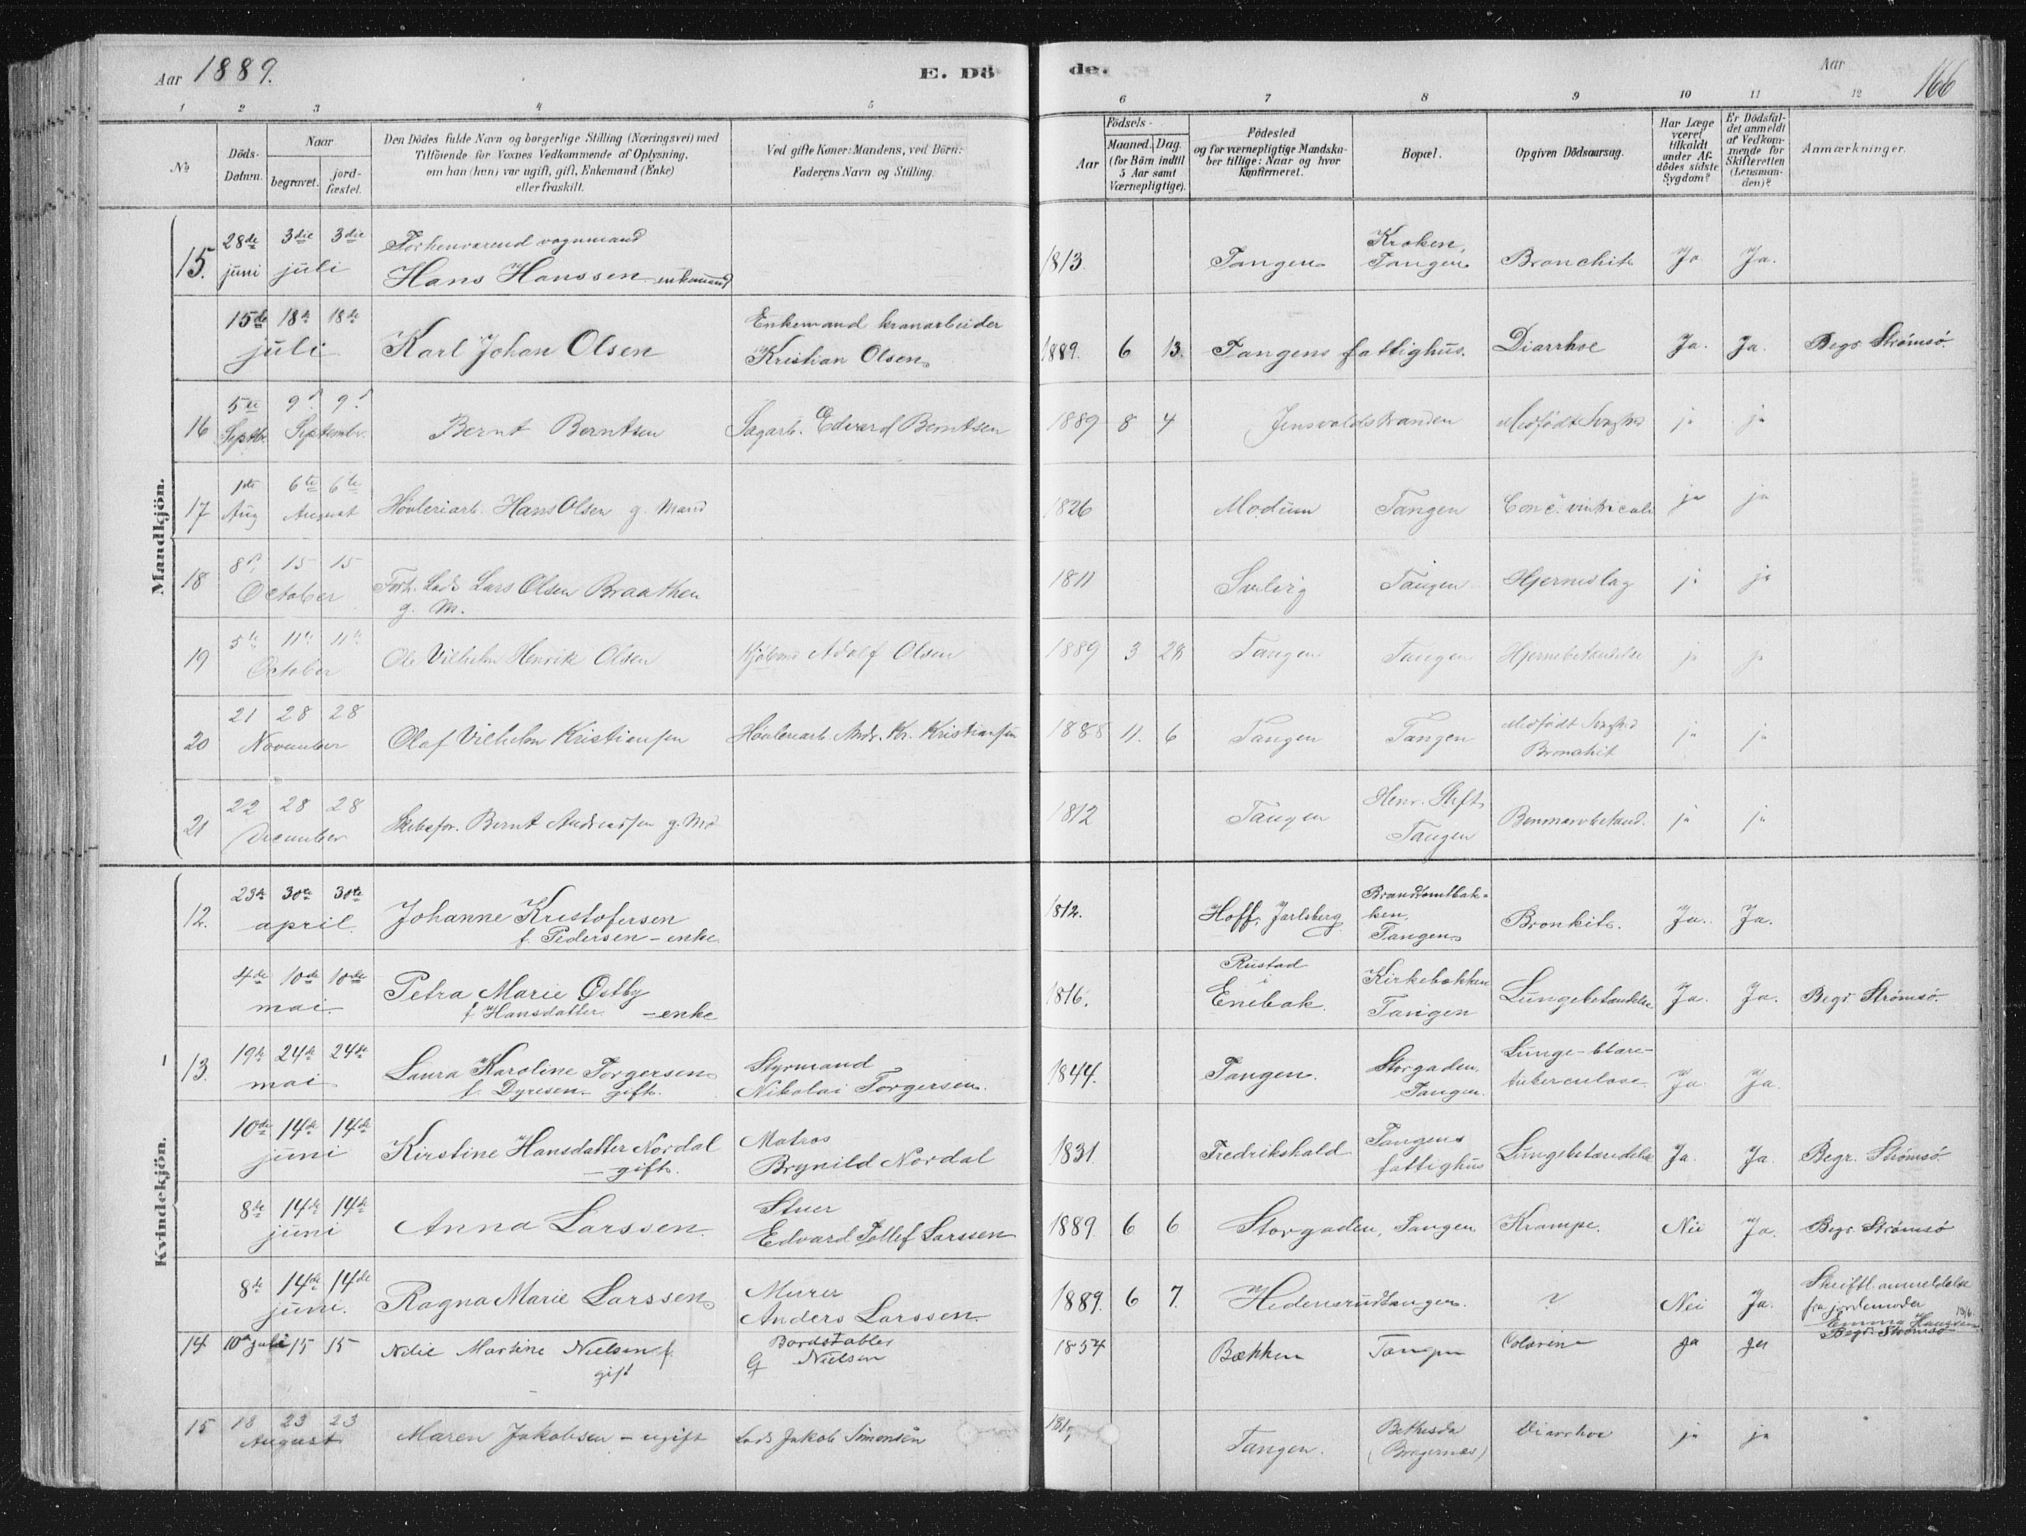 Aar 1889.
E. Dö
de.
Aar
166
1 2 3 4 5 6 7 8 9 10 11 12
No
Döds-
Datum.
Naar
begravet.
jord-
fæstet.
Den Dödes fulde Navn og borgerlige Stilling (Næringsvei) med
Tilföiende for Voxnes Vedkommende af Oplysning,
om han (hun) var ugift, gift, Enkemand (Enke)
eller fraskilt.
Ved gifte Koner: Mandens, ved Börn:
Faderens Navn og Stilling.
Födsels-
Aar
Maaned.
Dag.
(for Börn indtil
5 Aar samt
Værnepligtige).
Födested
og for værnepligtige Mandska-
ber tillige: Naar og hvor
Konfirmeret.
Bopæl.
Opgiven Dödsaarsag.
Har Læge
været
tilkaldt
under Af-
dödes sidste
Sygdom?
Er Dödsfal-
det anmeldt
af Vedkom-
mende for
Skifteretten
(Lensman-
den)?
Anmærkninger.
Mandkjön.
15. 28de juni 3die 3die juli Forhenværend vognmand
Hans Hanssen enkemand 1813. Tangen Kroken, Tangen Bronchit Ja Ja.
15de 18de 18de juli Karl Johan Olsen Enkemand kranarbeider
Kristian Olsen 1889. 6 13. Tangens fattighus. Diarrhoe Ja. Ja. Begr Strømsø.
16 5te Septbr. 9 9 Septembr. Bernt Berntsen Sagarb. Edvard Berntsen 1889 8 4 Medfödt ja ja
17 1ste Aug 6te 6te August Høvleriarb. Hans Olsen g. Mand 1826 Modum Tangen ja ja
18 8 15 15 October Lods Lars Olsen Braathen
g. M. 1811 Svelvig Tangen Hjerneslag ja ja
19 5te 11te 11te October Ole Vilhelm Henrik Olsen Adolf Olsen 1889 3 28 Tangen Tangen Hjernebetændelse ja ja
20 21 28 28 November Olaf Vilhelm Kristiansen Høvleriarb Andr. Kr. Kristiansen 1888 11. 6 Tangen Tangen Medfödt
Bronchit ja ja
21 22 28 28 December Bernt Andreassen g. Md 1812 Tangen Henr. Stift.
Tangen ja ja
Kvindekjön.
12. 23de 30te 30te april. Johanne Kristofersen
f. Pedersen - enke 1812. Hoff, Jarlsberg Tangen Bronkit. Ja. Ja.
4de 10de 10de mai. Petra Marie Østby
f Hansdatter - enke 1816. Rustad
i
Enebak. Kirkebakken
Tangen Lungebetændelse Ja. Ja. Begr Strømsø.
13. 19de 24de 24de mai Laura Karoline Torgersen
f. Dyresen gift. Styrmand
Nikolai Torgersen. 1844. Tangen. Storgaden,
Tangen. Lunge-
tuberculose Ja. Ja.
10de 14de 14de juni Kirstine Hansdatter Nordal
- gift. Matros
Brynild Nordal 1831. Fredrikshald Tangens
fattighus Lungebetændelse Ja. Ja. Begr. Strømsø
8de 14de 14de juni Anna Larssen. Stuer
Edvard Larssen 1889. 6 6 Storgaden, Tangen Krampe. Nei Ja. Begr Strømsø
8de 14de 14de juni. Ragna Marie Larssen Murer
Anders Larssen. 1889. 6 7. ? Nei Ja. Skriftl. anmeldelse
fra jordemoder
Emma
Begr. Strømsø
14 10de juli 15 15 Martine Nielsen f
gift Bordstabler
G Nielsen 1854 Bækken Tangen Ja Ja
15 18 23 23 August Maren Jakobsen - ugift Lods Jakob Simonsen Tangen. Bethesda
(Bragernæs) Diarrhoe ja ja